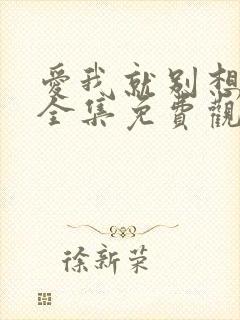 愛我就别想
全集免費觀
徐新荣